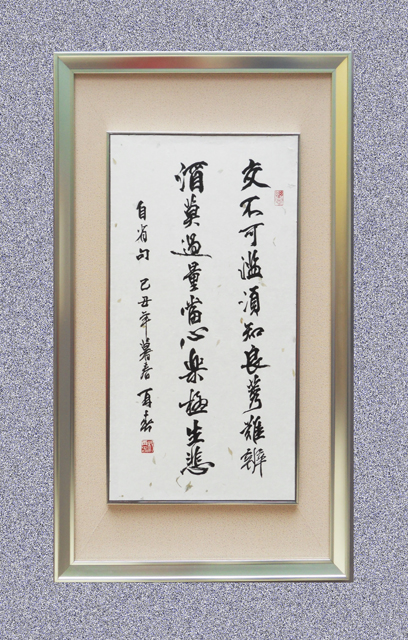 交不可濫須知良莠難辨
酒莫過量當心楽極生悲
自省句 己丑年暮春